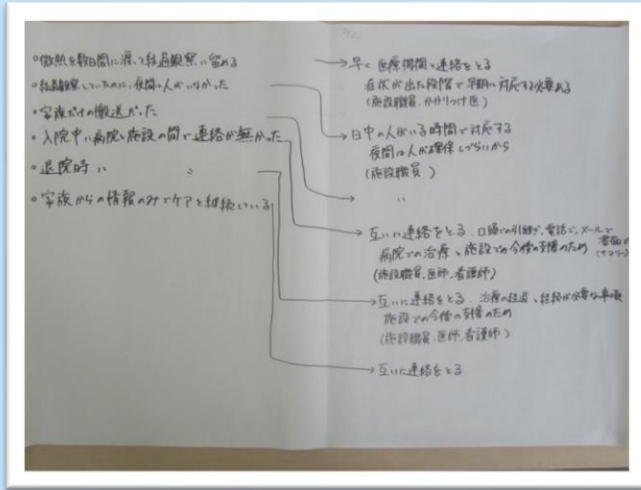 ・微熱を数日間に渡って経過観察に留める
・経過観察していたのに、夜間は人がいなかった
・家族だけの搬送だった
・入院中に病院と施設の間で連絡が無かった
・退院時に 〃
・家族からの情報のみでケアを継続している
→早く医療機関と連絡をとる
症状が出た段階で早期に対応する必要ある
(施設職員、かかりつけ医)
→日中の人がいる時間で対応する
夜間は人が確保しづらいから
(施設職員)
→ 〃
→互いに連絡をとる。口頭での引継ぎ、電話で、メールで
書面で
(サマリー)
病院での治療、施設での今後の支援のため
(施設職員、医師、看護師)
→互いに連絡をとる。治療の経過、継続が必要な事項
施設での今後の支援のため
(施設職員、医師、看護師)
→互いに連絡をとる